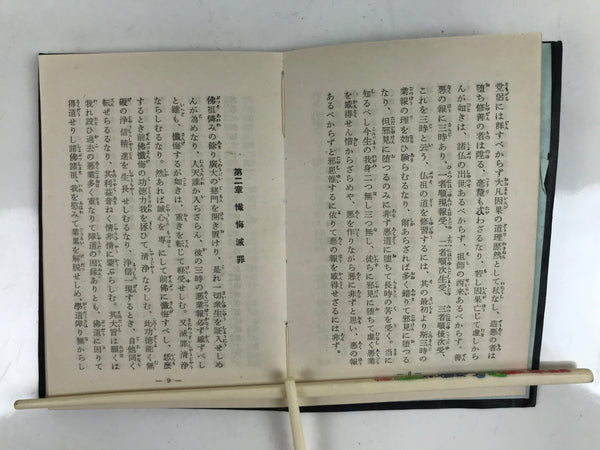 党侶には群すべからず大凡因果の道理歴然として私なし、造悪の者は
堕ち修善の者は陞る、毫釐も忒わざるなり、若し因果亡じて虚しから
んが如きは、諸仏の出世あるべからず、祖師の西来あるべからず。善
悪の報に三時あり、一者順現報受、二者順次生受、三者順後次受、
これを三時と云う、仏祖の道を修習するには、其の最初より斯三時の
業報の理を効い験らむるなり、爾あらざれば多く錯りて邪見に堕つる
なり、但邪見に堕つるのみに非ず悪道に堕ちて長時の苦を受く。当に
知るべし今生の我身二つ無し三つ無し、徒らに邪見に堕ちて虚く悪業
を感得せん惜からざらめや、悪を作りながら悪に非ずと思い、悪の報
あるべからずと邪思惟するに依りて悪の報を感得せざるには非ず。
第二章 懺悔滅罪
佛祖憐みの余り廣大の慈門を開き置けり、是れ一切衆生を証入せしめ
んが為めなり、人天誰か入らざらん、彼の三時の悪業報必ず感ずべし
と雖も、懺悔するが如きは、重きを転じて軽受せしむ、又滅罪清浄
ならしむるなり。然あれば誠心を専にして前佛に懺悔すべし、恁麼
するとき前佛懺悔の功徳力我を拯いて清浄ならしむ、此功徳能く無
礙の浄信精進を生長せしむるなり、浄信一現するとき、自他同く
転ぜらるるなり、其利益普ねく情非情に蒙ぶらしむ。其大旨は願くは
我れ設ひ過去の悪業多く重なりて障道の因縁ありとも、佛道に因りて
得道せりし諸佛諸祖、我を愍みて業累を解脱せしめ、學道障り無からし
— 9 —